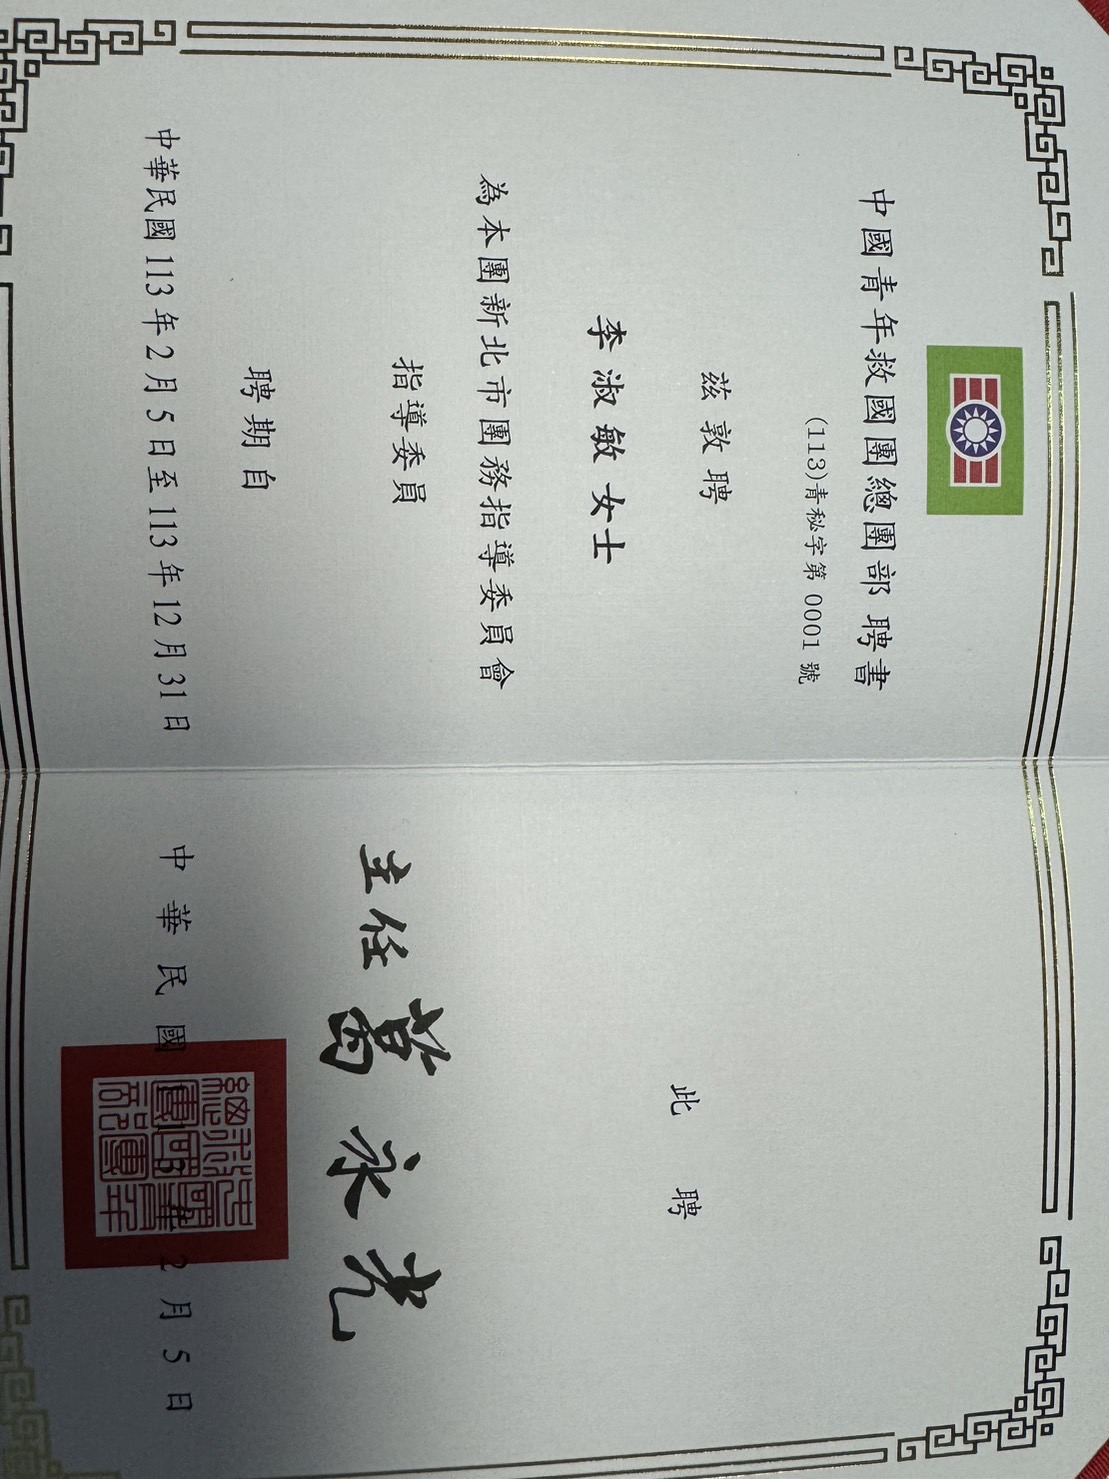 中國青年救國團總團部 聘書
(113)青秘字第 0001 號
茲敦聘
李淑敏女士
為本團新北市團務指導委員會
指導委員
聘期自
中華民國 113 年 2 月 5 日至 113 年 12 月 31 日
此聘
主任 葛永光
中華民國 113 年 2 月 5 日